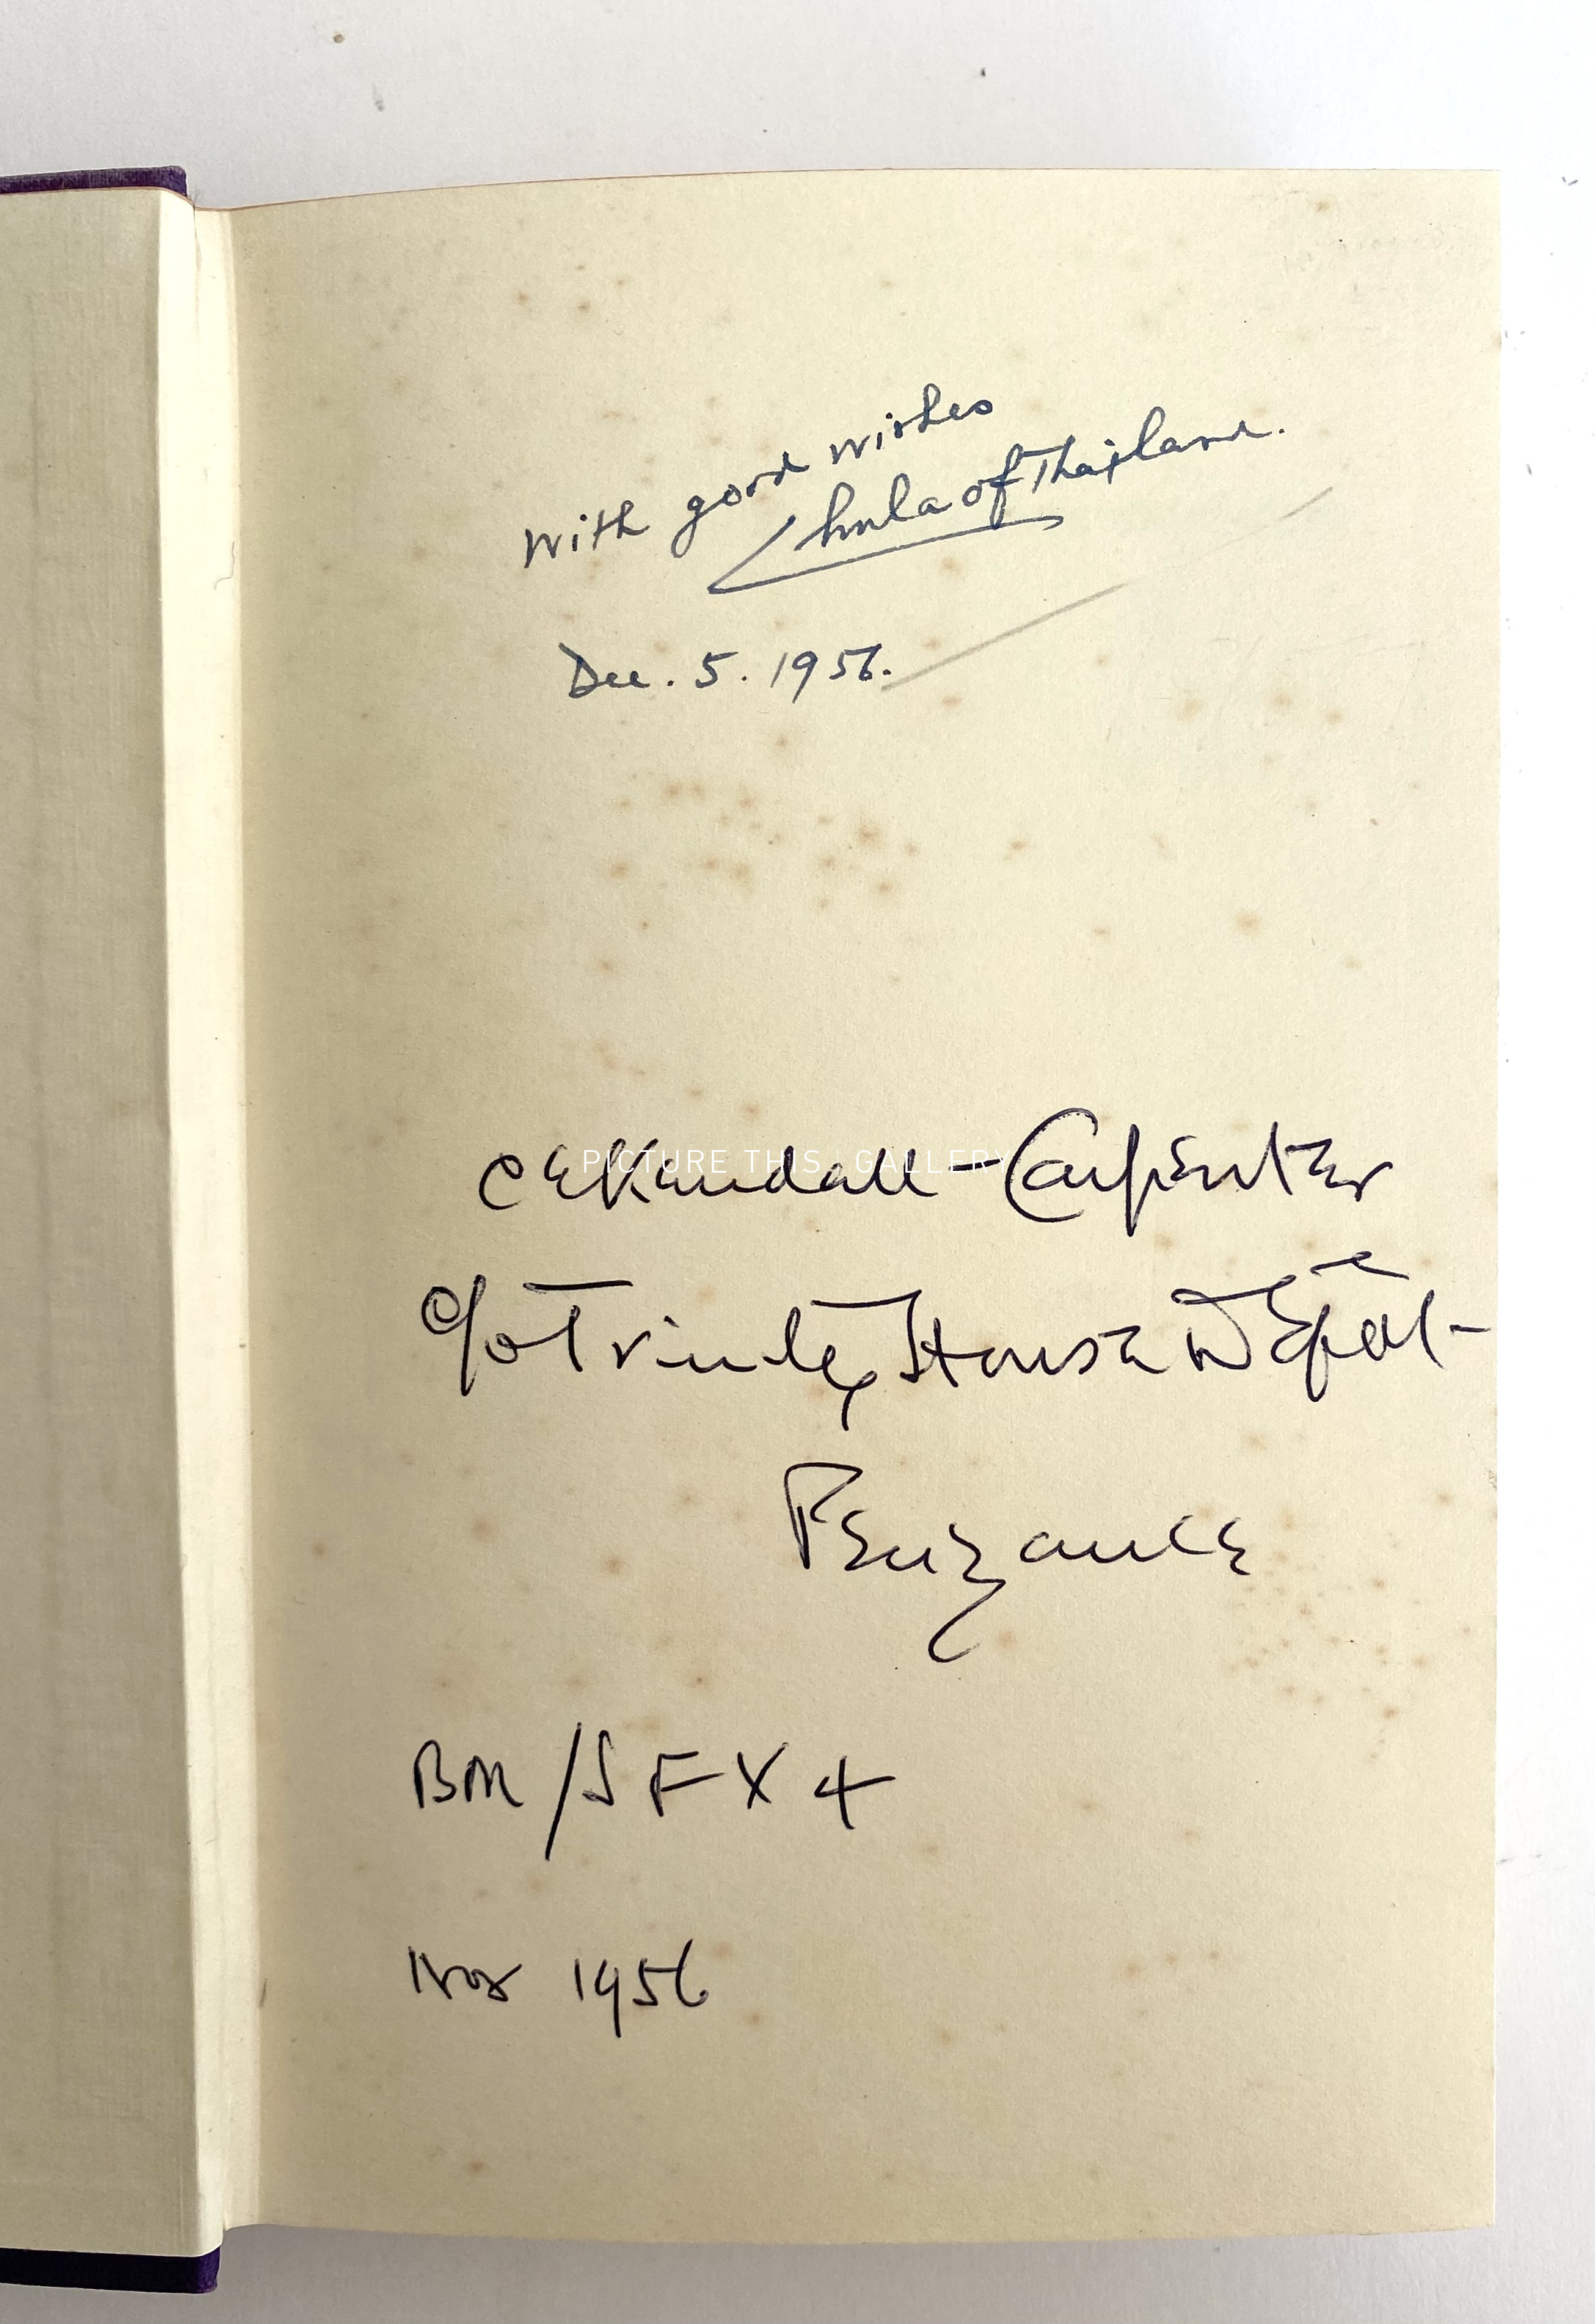 With good wishes
Chula of Thailand.
Dec. 5. 1956.
C E Kendall-Carpenter
PICTURE THIS | GALLERY
c/o Trinity House Depôt-
Penzance
BM/SFX4
Nov 1956